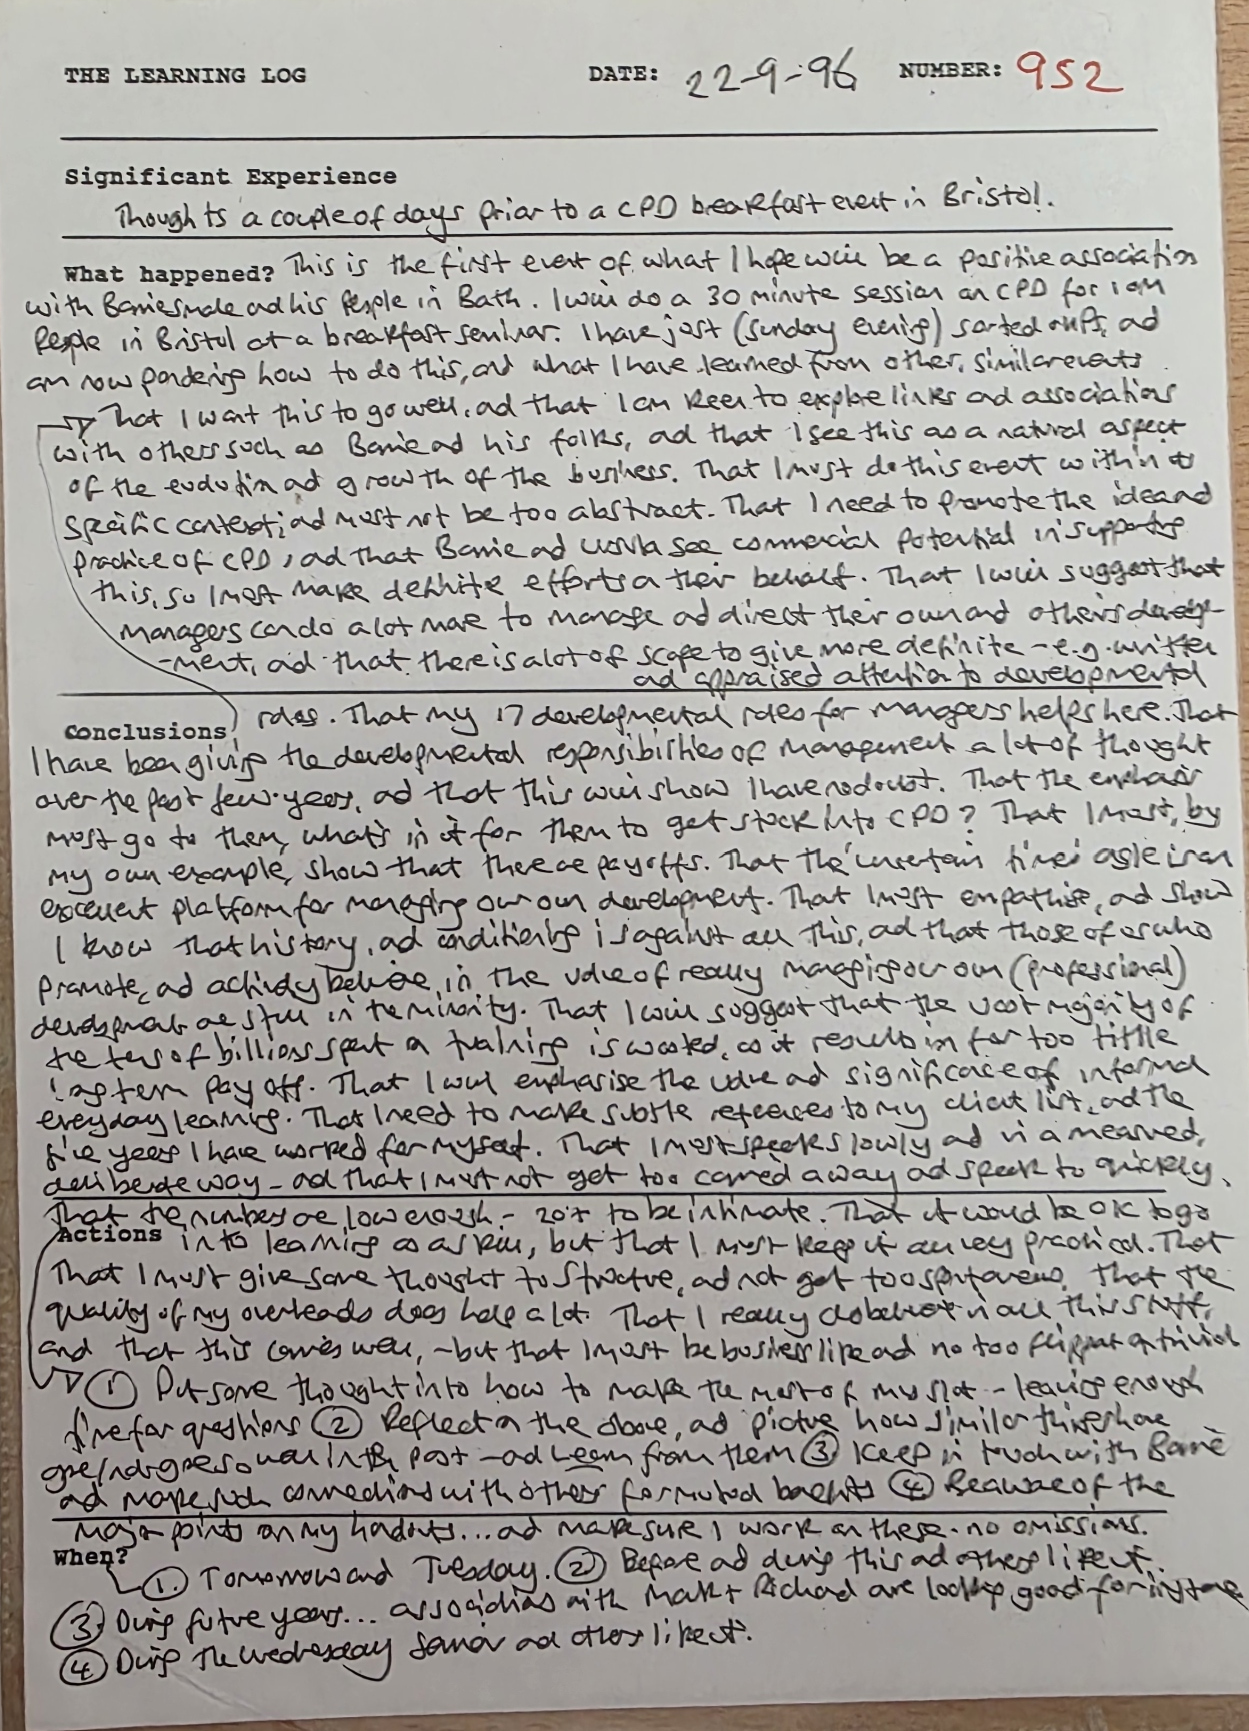 THE LEARNING LOG DATE: 22-9-96 NUMBER: 952
Significant Experience
Thoughts a couple of days prior to a CPD breakfast event in Bristol.
What happened? This is the first event of what I hope will be a positive association
with Barrie and his People in Bath. I will do a 30 minute session on CPD for
People in Bristol at a breakfast seminar. I have just (Sunday evening) sorted ad
am now pondering how to do this, and what I have learned from other, similar events
That I want this to go well, ad that I am keen to explore links ad associations
with others such as Barrie ad his folks, ad that I see this as a natural aspect
of the evolution ad growth of the business. That I must do this event within a
specific context, ad must not be too abstract. That I need to promote the idea and
practice of CPD, ad that Barrie ad see commercial potential in supporting
this, so I must make definite efforts on their behalf. That I will suggest that
managers can do a lot more to manage ad direct their own and others develop-
-ment, ad that there is a lot of scope to give more definite - e.g. written
ad appraised attention to developmental
Conclusions roles. That my 17 developmental roles for managers helps here. That
I have been giving the developmental responsibilities of management a lot of thought
over the past few years, ad that this will show I have no doubt. That the emphasis
must go to them, what's in it for them to get stuck into CPD? That I must, by
my own example, show that there are pay offs. That the 'uncertain times' angle is an
excellent platform for managing our own development. That I must empathise, ad show
I know that history, ad conditioning is against all this, ad that those of us who
promote, ad actively believe, in the value of really managing our own (professional)
development are still in the minority. That I will suggest that the vast majority of
the tens of billions spent on training is wasted, as it results in far too little
long term pay off. That I will emphasise the value ad significance of informal
everyday learning. That I need to make subtle references to my client list, ad the
five years I have worked for myself. That I must speak slowly ad in a measured,
deliberate way - ad that I must not get too carried away ad speak to quickly.
That the numbers are low enough - 20ish to be intimate. That it would be OK to go
Actions into learning as a skill, but that I must keep it all very practical. That
That I must give some thought to structure, ad not get too spontaneous. That the
quality of my overheads does help a lot. That I really do believe in all this stuff,
and that this comes over, - but that I must be businesslike ad no too flippant or trivial
① Put some thought into how to make the most of my slot - leaving enough
time for questions ② Reflect on the above, ad picture how similar things have
gone/not gone so well in the past - ad learn from them ③ Keep in touch with Barrie
ad make such connections with others for mutual benefits ④ Be aware of the
major points on my handouts... ad make sure I work on these - no omissions.
When?
①. Tomorrow and Tuesday. ② Before ad during this ad others like it.
③ During future years... associations with Mark + Richard are looking good for instance
④ During the Wednesday ad others like it.